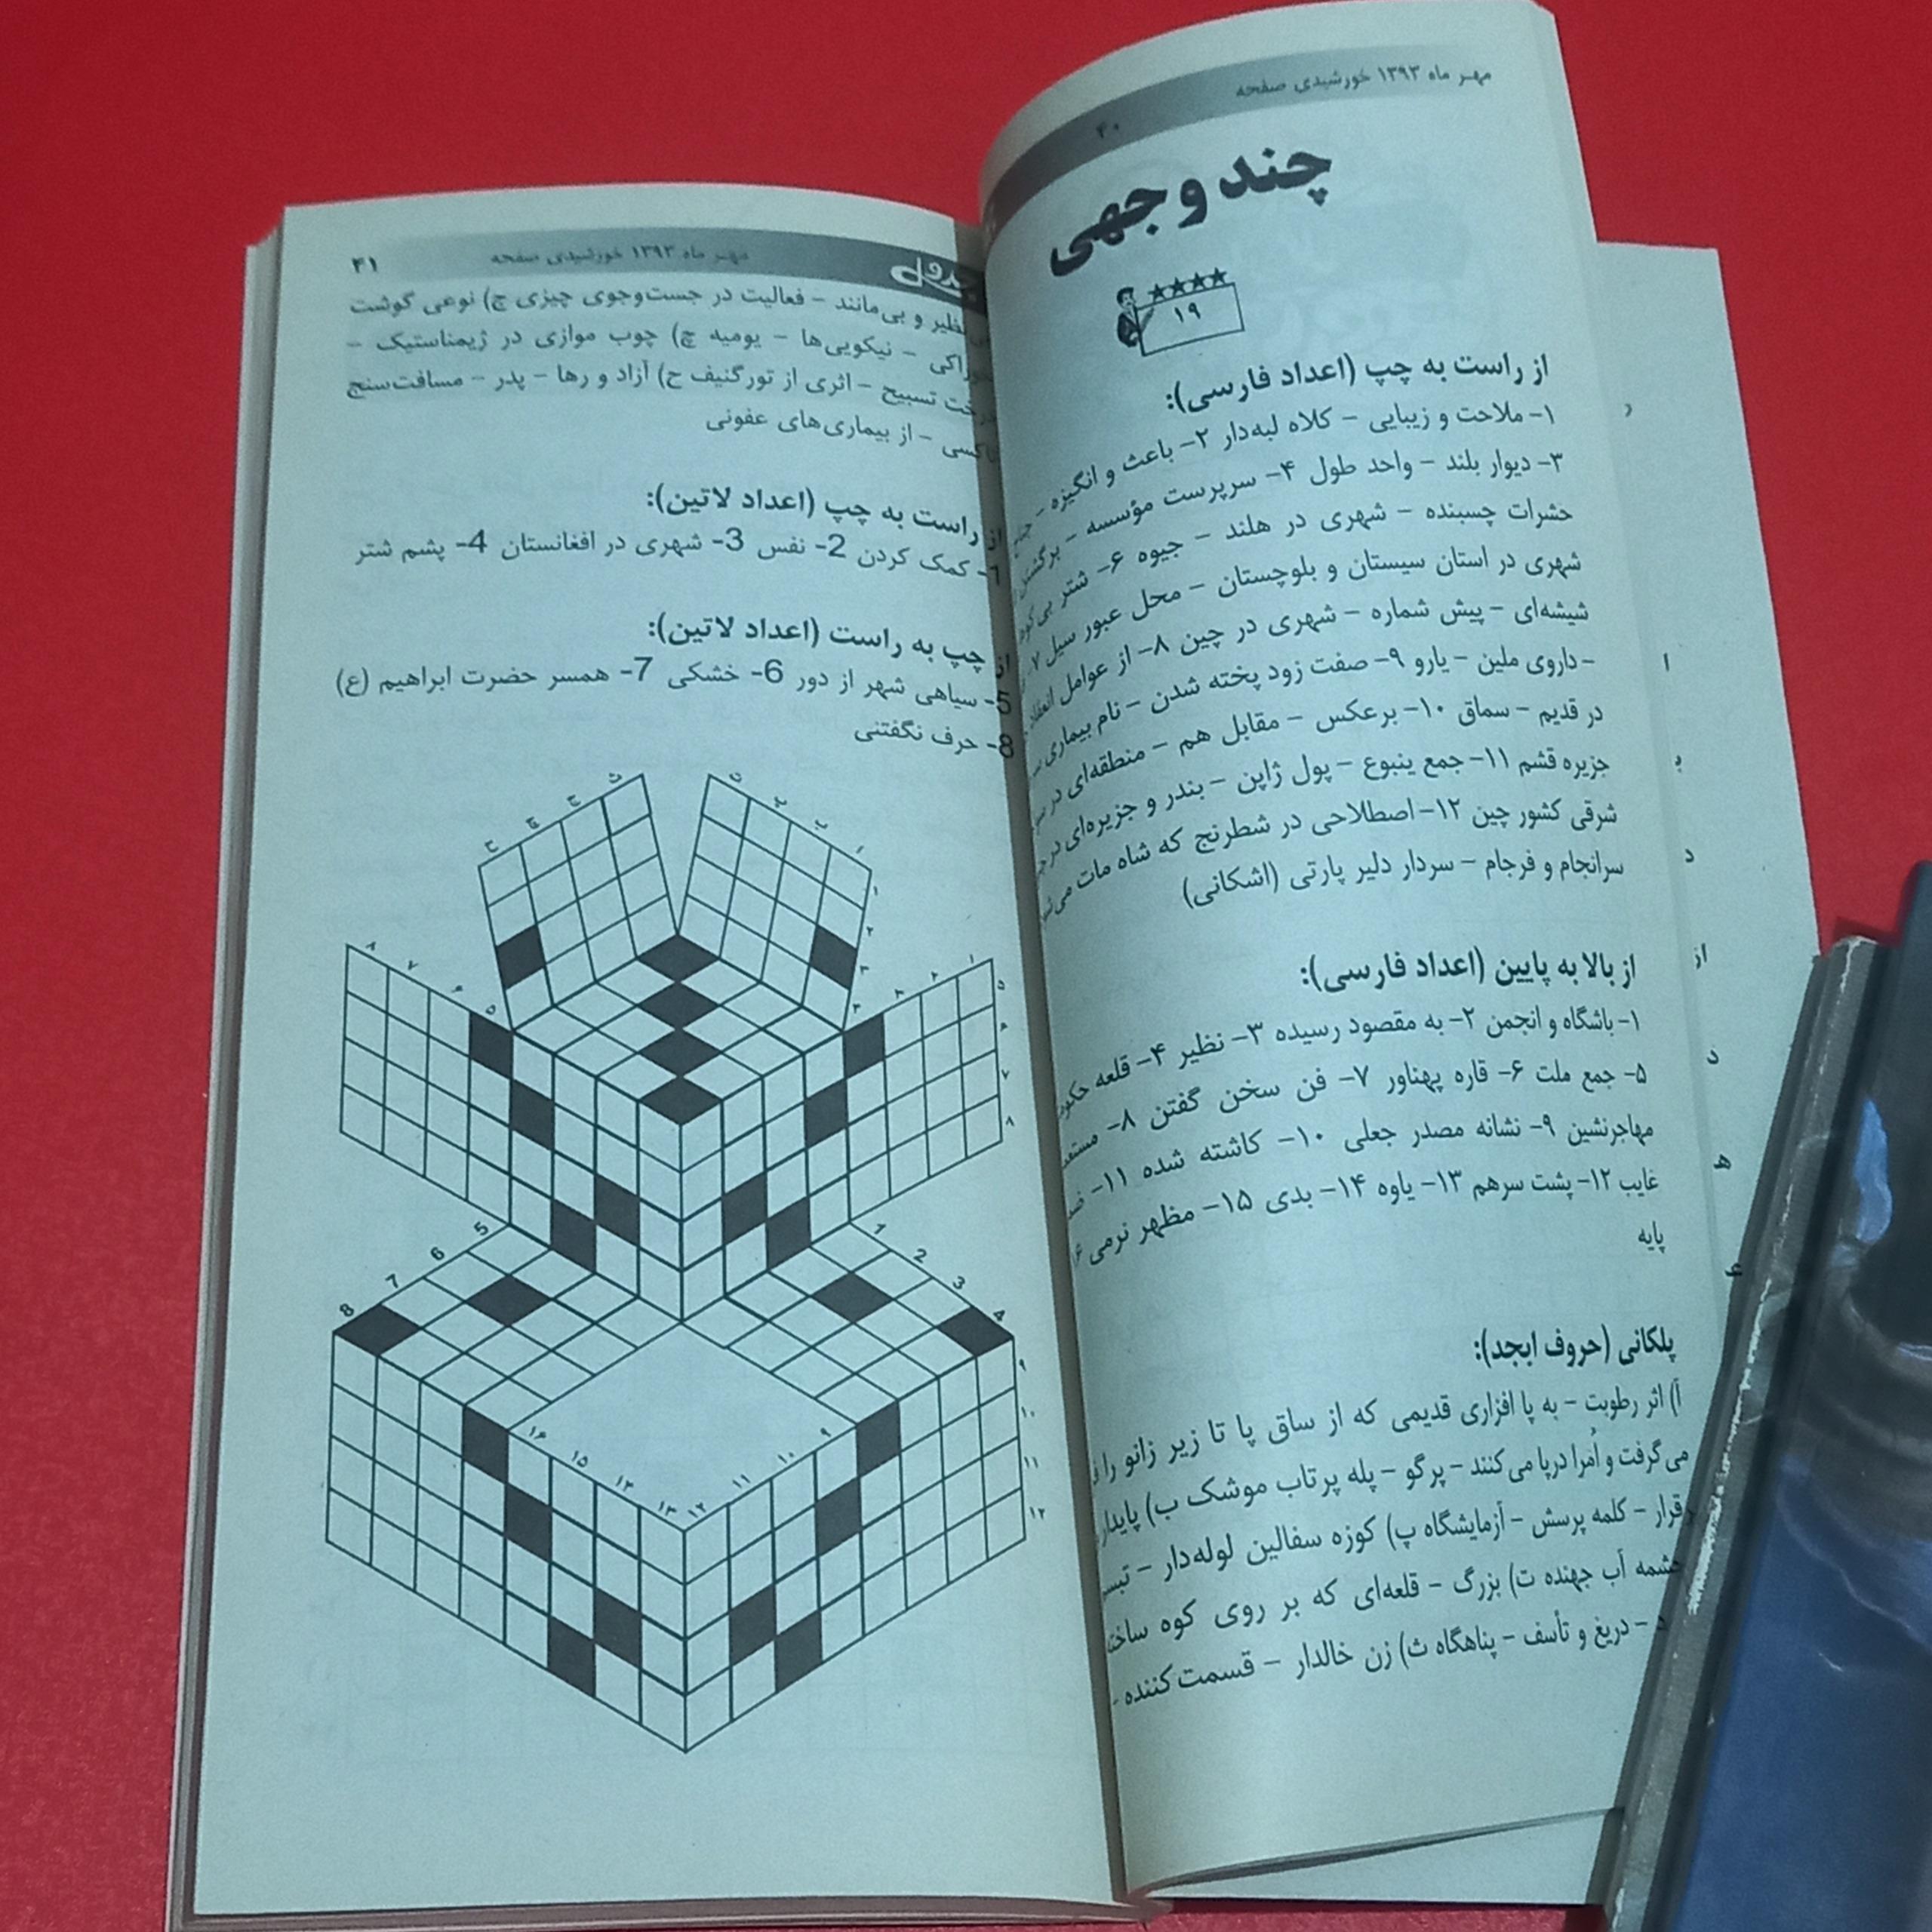 مهر ماه ۱۳۹۳ خورشیدی صفحه
۴۰
چند وجهی
۱۹
از راست به چپ (اعداد فارسی):
۱- ملاحت و زیبایی - کلاه لبه‌دار ۲- باعث و انگیزه -
۳- دیوار بلند - واحد طول ۴- سرپرست مؤسسه - برگشتن
حشرات چسبنده - شهری در هلند - جیوه ۶- شتر
شهری در استان سیستان و بلوچستان - محل عبور سیل ۷-
شیشه‌ای - پیش شماره - شهری در چین ۸- از عوامل
- داروی ملین - یارو ۹- صفت زود پخته شدن - نام بیماری
در قدیم - سماق ۱۰- برعکس - مقابل هم - منطقه‌ای در
جزیره قشم ۱۱- جمع ینبوع - پول ژاپن - بندر و جزیره‌ای در
شرقی کشور چین ۱۲- اصطلاحی در شطرنج که شاه مات
سرانجام و فرجام - سردار دلیر پارتی (اشکانی)
از بالا به پایین (اعداد فارسی):
۱- باشگاه و انجمن ۲- به مقصود رسیده ۳- نظیر ۴- قلعه
۵- جمع ملت ۶- قاره پهناور ۷- فن سخن گفتن ۸-
مهاجرنشین ۹- نشانه مصدر جعلی ۱۰- کاشته شده ۱۱-
غایب ۱۲- پشت سرهم ۱۳- یاوه ۱۴- بدی ۱۵- مظهر نرمی
پایه
پلکانی (حروف ابجد):
آ) اثر رطوبت - به پا افزاری قدیمی که از ساق پا تا زیر زانو را
می‌گرفت و اُمرا درپا می‌کنند - پرگو - پله پرتاب موشک ب) پایدار
قرار - کلمه پرسش - آزمایشگاه پ) کوزه سفالین لوله‌دار -
چشمه آب جهنده ت) بزرگ - قلعه‌ای که بر روی کوه
- دریغ و تأسف - پناهگاه ث) زن خالدار - قسمت کننده -
جدول
مهر ماه ۱۳۹۳ خورشیدی صفحه
۴۱
نظیر و بی‌مانند - فعالیت در جست‌وجوی چیزی ج) نوعی گوشت
- نیکویی‌ها - یومیه چ) چوب موازی در ژیمناستیک -
درخت تسبیح - اثری از تورگنیف ح) آزاد و رها - پدر - مسافت‌سنج
تاکسی - از بیماری‌های عفونی
از راست به چپ (اعداد لاتین):
1- کمک کردن 2- نفس 3- شهری در افغانستان 4- پشم شتر
از چپ به راست (اعداد لاتین):
5- سیاهی شهر از دور 6- خشکی 7- همسر حضرت ابراهیم (ع)
8- حرف نگفتنی
ث ت
ج پ
چ ب
ح آ
۱
۲
۳
۴
۸ ۷ ۶ ۵ ۴ ۳ ۲ ۱
۵
۶
۷
۸
5 1
6 2
7 3
8 4
۹
۱۰
۱۱
۱۲
۱۶ ۱۵ ۱۴ ۱۳ ۱۲ ۱۱ ۱۰ ۹